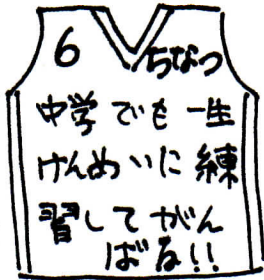 6 ちなつ
中学でも一生
けんめいに練
習してがん
ばる!!